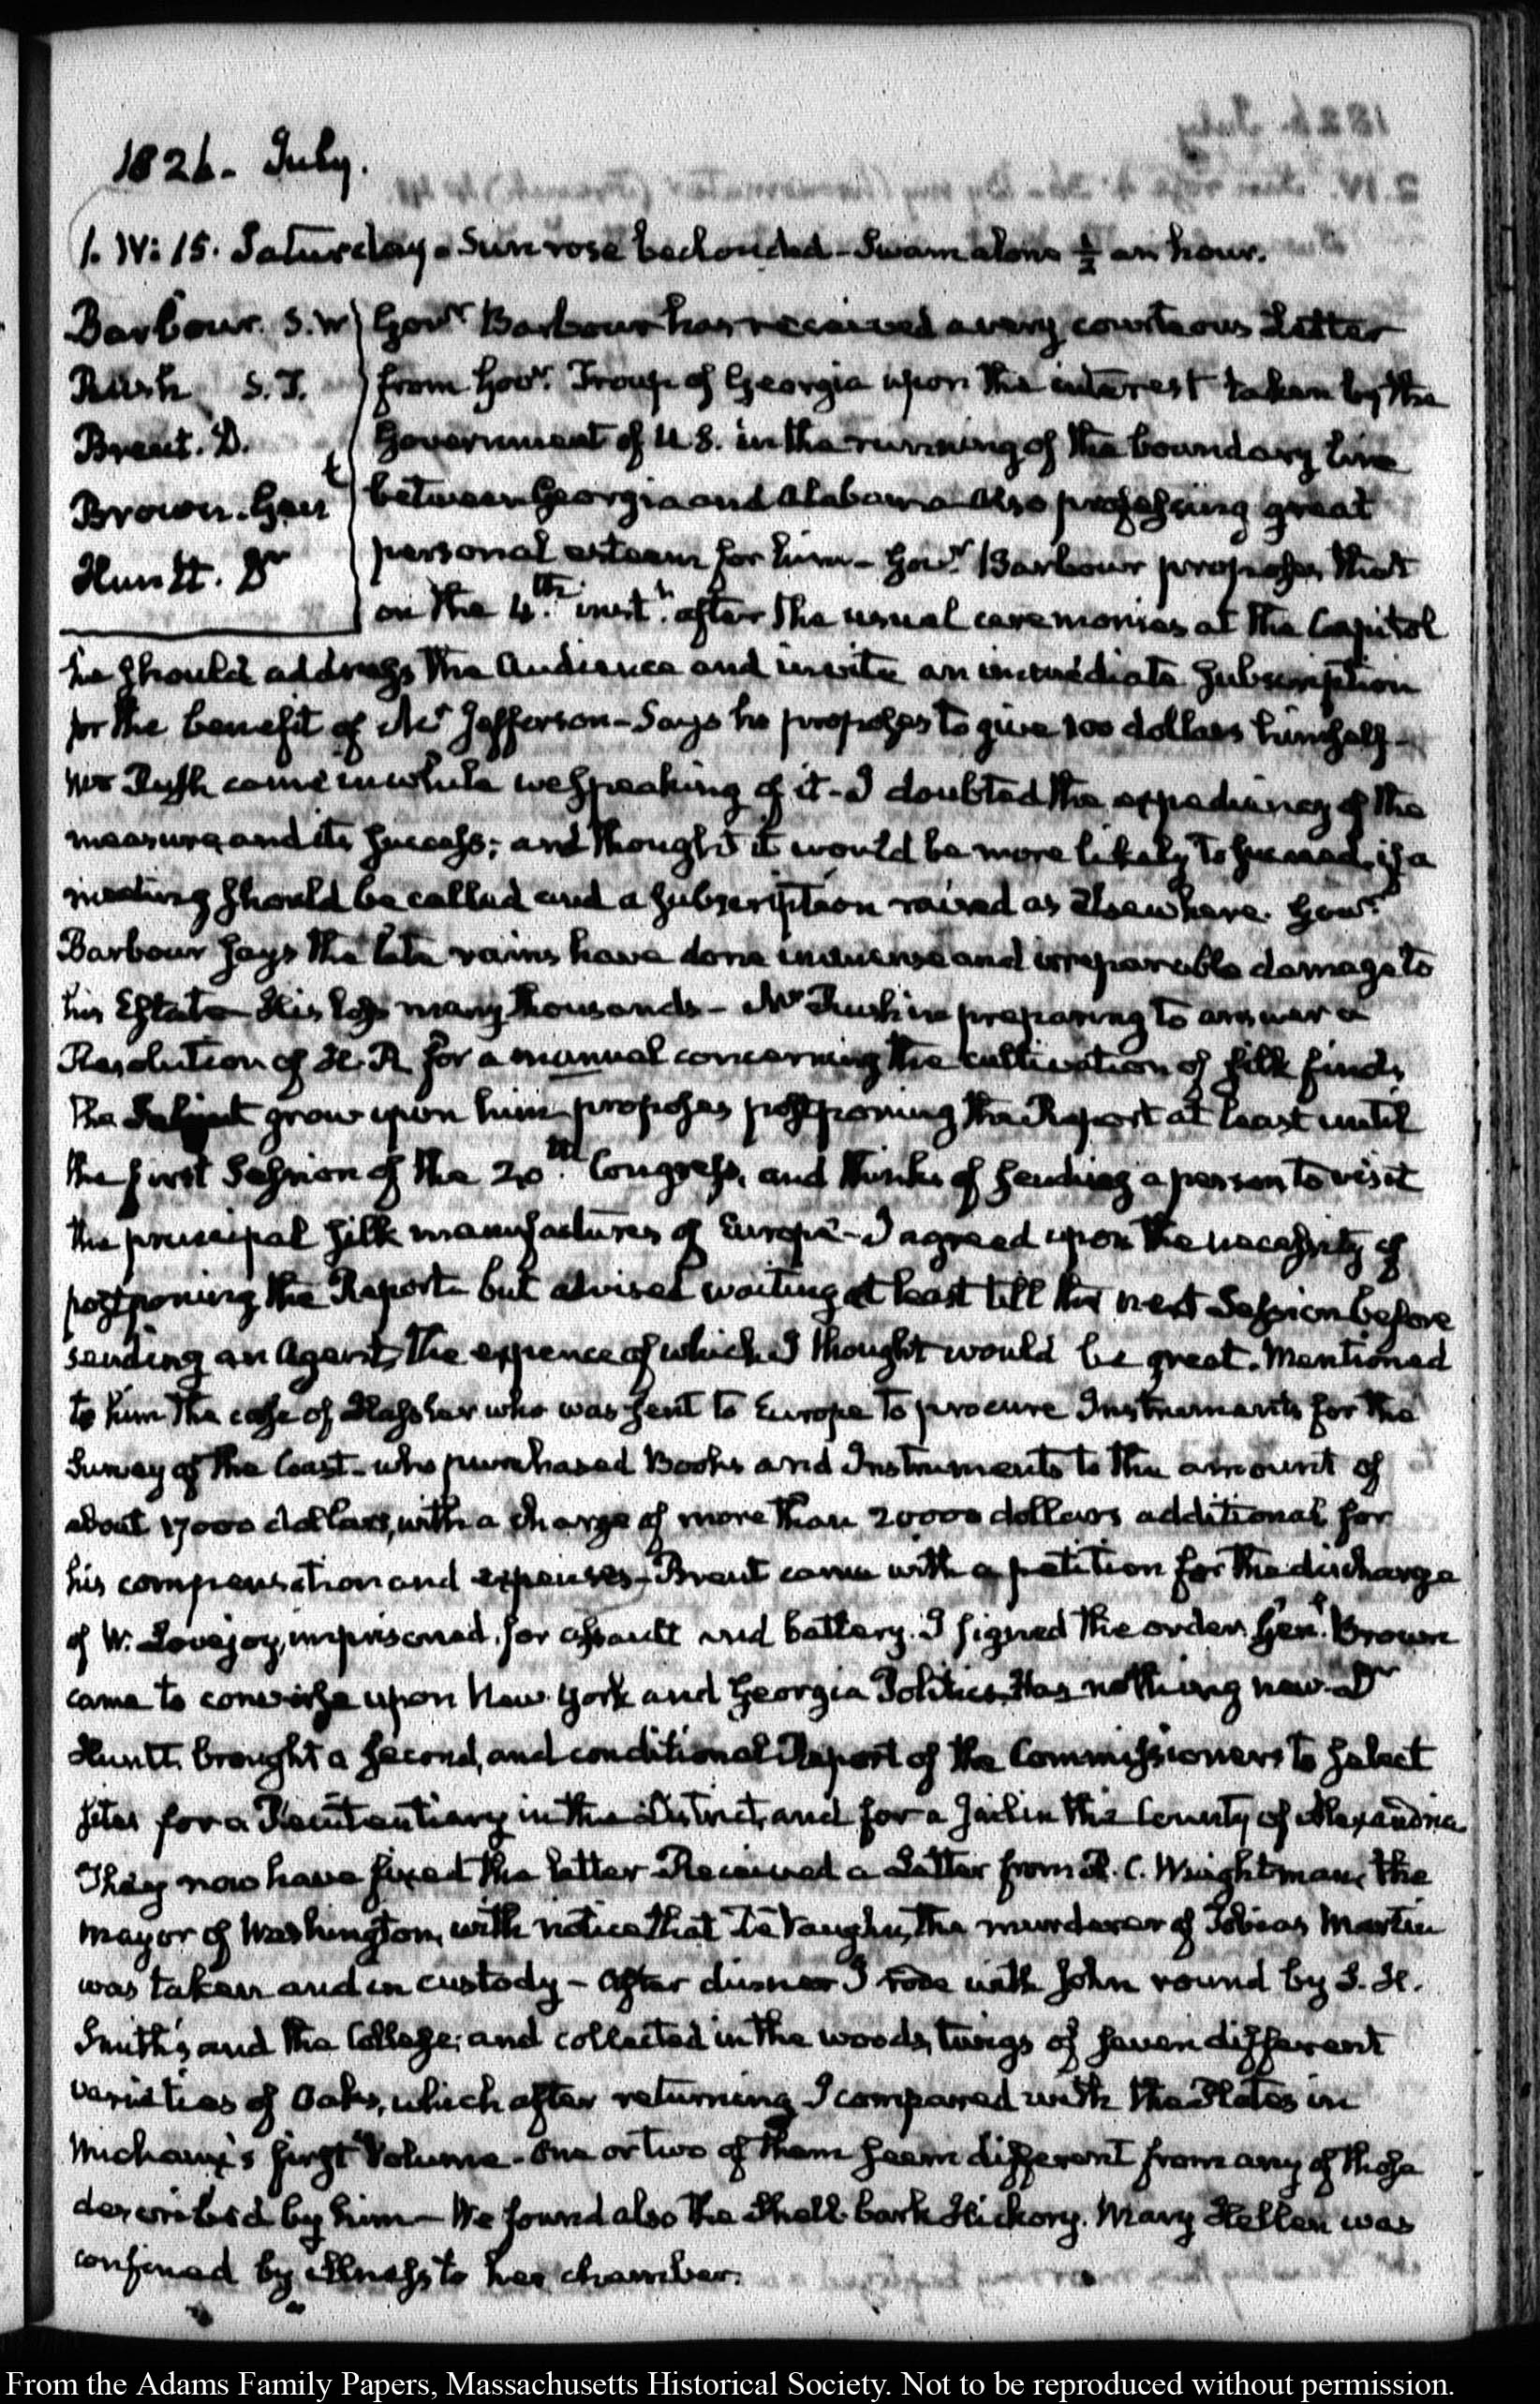 1826. July.
1. IV: 15. Saturday. Sun rose beclouded - Swam alone ½ an hour.
Barbour. S.W
Rush S.T.
Brent. D.
Brown. Genl
Huntt. Dr
Govr. Barbour has received a very courteous Letter
from Govr. Troup of Georgia upon the interest taken by the
Government of U.S. in the running of the boundary line
between Georgia and Alabama - Also professing great
personal esteem for him - Govr. Barbour proposes that
on the 4th. inst. after the usual ceremonies at the Capitol
he should address the Audience and invite an immediate subscription
for the benefit of Mr Jefferson - Says he proposes to give 100 dollars himself -
Mr Rush came in while we speaking of it - I doubted the expediency of the
measure, and its success; and thought it would be more likely to succeed, if a
meeting should be called and a subscription raised as elsewhere. Govr.
Barbour says the late rains have done immense and irreparable damage to
his Estate - His loss many thousands - Mr Rush in preparing to answer a
Resolution of H.R. for a manual concerning the cultivation of silk finds
the Subject grow upon him - proposes postponing the Report at least until
the first Session of the 20th. Congress, and thinks of sending a person to visit
the principal silk manufactures of Europe - I agreed upon the necessity of
postponing the Report - but advised waiting at least till the next Session before
sending an Agent, the expence of which I thought would be great. Mentioned
to him the case of Hassler who was sent to Europe to procure Instruments for the
Survey of the Coast - who purchased Books and Instruments to the amount of
about 17000 dollars, with a charge of more than 20000 dollars additional for
his compensation and expenses - Brent came with a petition for the discharge
of W. Lovejoy, imprisoned for assault and battery. I signed the order. Genl. Brown
came to converse upon New York and Georgia Politics. Has nothing new - Dr
Huntt brought a second, and conditional Report of the Commissioners to select
sites for a Penitentiary in this District, and for a Jail in the County of Alexandria
They now have fixed the latter - Received a Letter from R. C. Weightman, the
Mayor of Washington, with notice that De Vaughn, the murderer of Tobias Martin
was taken and in custody - After dinner I rode with John round by S. H.
Smith's and the College; and collected in the woods, twigs of seven different
varieties of Oaks, which after returning I compared with the Plates in
Michaux's first Volume - One or two of them seem different from any of those
described by him - We found also the Shell-bark Hickory. Mary Hellen was
confined by illness to her chamber.
From the Adams Family Papers, Massachusetts Historical Society. Not to be reproduced without permission.